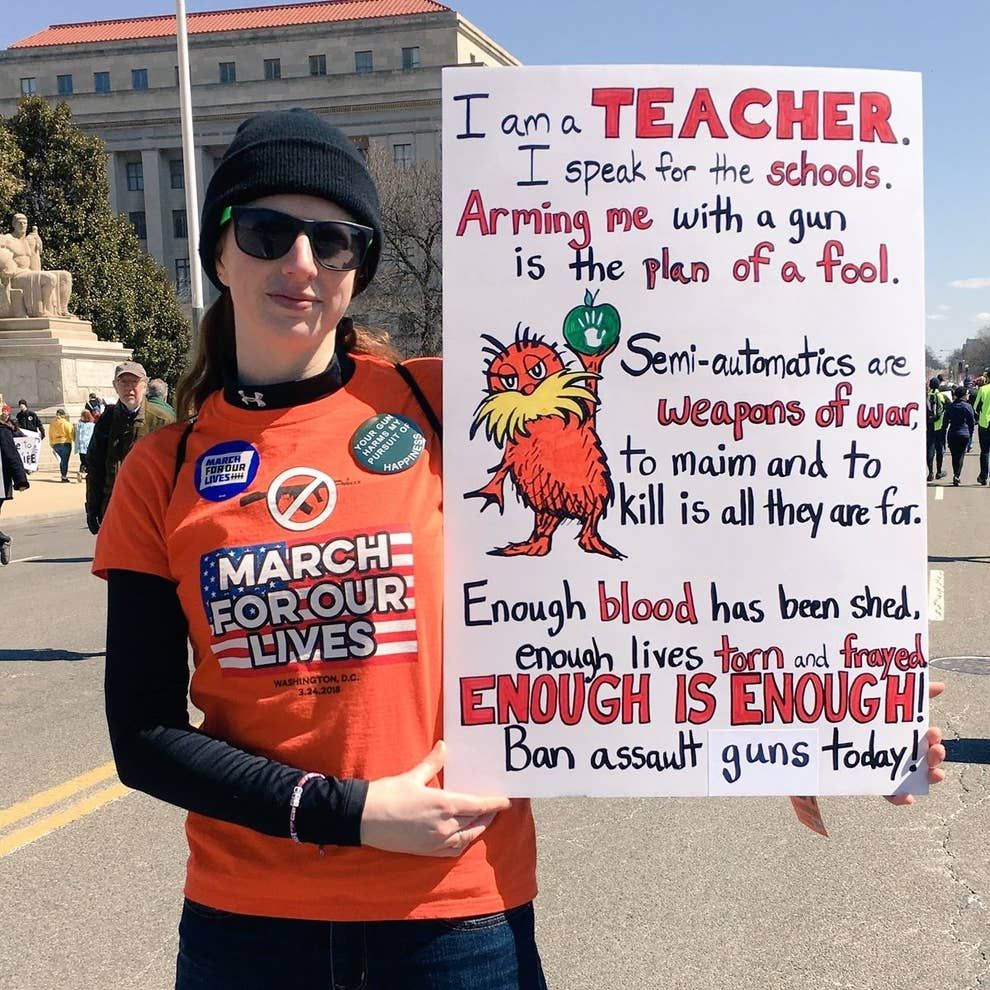 I am a TEACHER.
I speak for the schools.
Arming me with a gun
is the plan of a fool.
Semi-automatics are
weapons of war,
to maim and to
kill is all they are for.
Enough blood has been shed,
enough lives torn and frayed
ENOUGH IS ENOUGH!
Ban assault guns today!
MARCH
FOR OUR
LIVES
YOUR GUN
HARMS MY
PURSUIT OF
HAPPINESS
MARCH
FOR OUR
LIVES
WASHINGTON, D.C.
3.24.2018